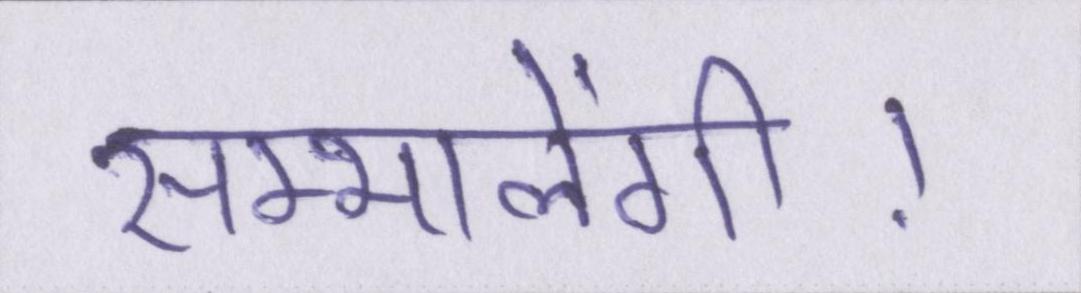 सम्भालेंगी !